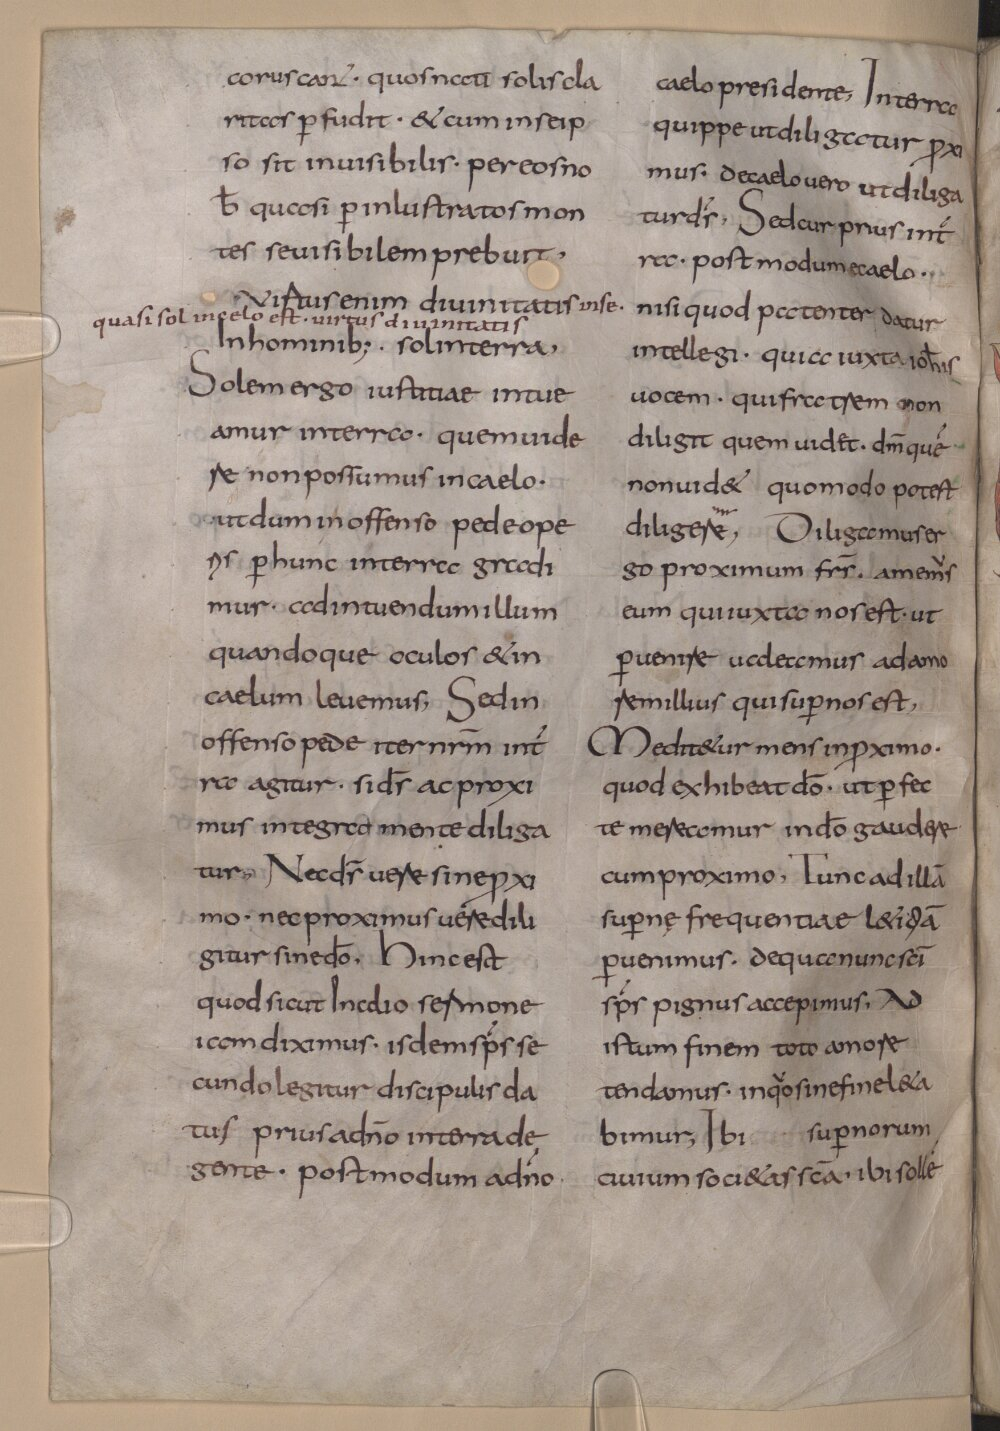 coruscant̄· quosnaui solis cla
ritas p̄fudit· & cum inseip
so sit inuisibilis· per eos no
b̄ quasi p̄inlustratos mon
tes se uisibilem prebuit,
Virtus enim diuinitatis inse·
quasi sol incelo est· uirtus diuinitatis
In hominib;· sol interra,
Solem ergo iustitiae intue
amur interra· quem uide
re non possumus in caelo·
ut dum inoffenso pede ope
ris p̄ hunc interra gradi
mur· ad intuendum illum
quandoque oculos & in
caelum leuemus, Sed in
offenso pede iter nr̄m int̄
ra agitur· si d̄s ac proxi
mus integra mente diliga
tur, Nec d̄s uere sine p̄xi
mo· nec proximus uere dili
gitur sine d̄o, Hinc est
quod sicut In alio sermone
iam diximus· isdem sp̄s se
cundo legitur discipulis da
tus prius adn̄o interra de
gente· postmodum adn̄o
caelo presidente, Interra
quippe ut diligatur p̄xi
mus· de caelo uero ut diliga
tur d̄s, Sed cur prius int̄
ra· postmodum ecaelo·
nisi quod patenter datur
intellegi· quia iuxta ioh̄is
uocem· qui fratrem non
diligit quem uidet· dm̄ quē
non uid& quomodo potest
diligere, Diligamus er
go proximum fr̄s· amem's
eum qui iuxta nos est· ut
p̄uenire ualeamus ad amo
rem illius qui sup̄ nos est,
Medit&ur mens in p̄ximo·
quod exhibeat d̄o· ut p̄fec
te mereamur in d̄o gaudere
cum proximo, Tunc ad illā
sup̄nę frequentiae l&itiā
p̄uenimus· de qua nunc s̄ci
sp̄s pignus accepimus, Ad
istum finem toto amore
tendamus· in quo sine fine l&a
bimur, Ibi sup̄norum
ciuium soci&as s̄ca· ibi sollē